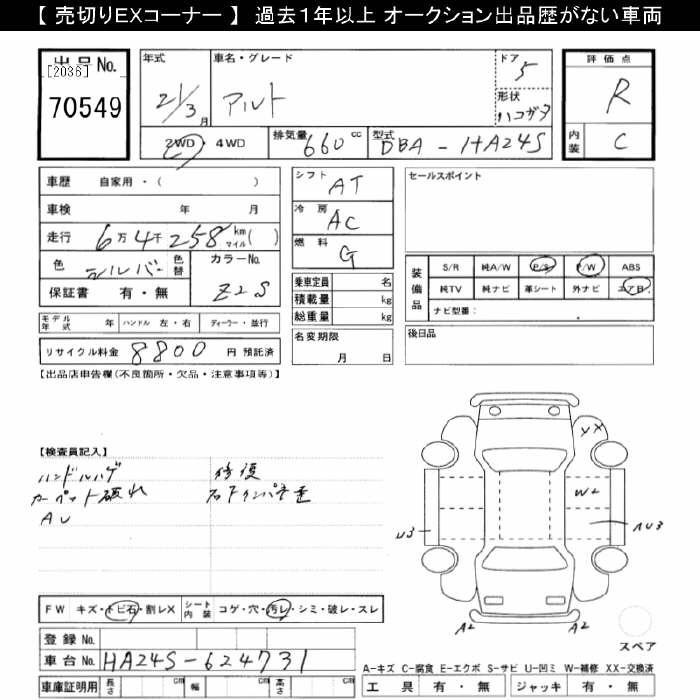 【 売切りEXコーナー 】 過去１年以上 オークション出品歴がない車両
出品No.
[2036]
70549
年式
21/3月
車名・グレード
アルト
ドア
5
形状
ハコガタ
2WD・4WD
排気量 660 cc
型式 DBA-HA24S
評価点
R
内装
C
車歴 自家用・( )
車検 年 月
走行 6万4千258 km マイル( )
色 シルバー 色替
カラーNo.
Z2S
保証書 有・無
モデル年式 年 ハンドル 左・右 ディーラー・並行
リサイクル料金 8800 円 預託済
シフト
AT
冷房
AC
燃料
G
乗車定員 名
積載量 kg
総重量 kg
名変期限
月 日
セールスポイント
装備品
S/R 純A/W P/S P/W ABS
純TV 純ナビ 革シート 外ナビ エアB
ナビ型番:
後日品
【出品店申告欄(不良箇所・欠品・注意事項等)】
【検査員記入】
ハンドルハゲ
カーペット破れ
AU
修復
XX
W2
U3
AU3
A2
A2
スペア
FW キズ・トビ石・割レX
シート内装 コゲ・穴・汚レ・シミ・破レ・スレ
登録No.
車台No. HA24S-624731
車庫証明用 長さ cm 幅 cm 高さ cm
A-キズ C-腐食 E-エクボ S-サビ U-凹ミ W-補修 XX-交換済
工具 有・無 ジャッキ 有・無